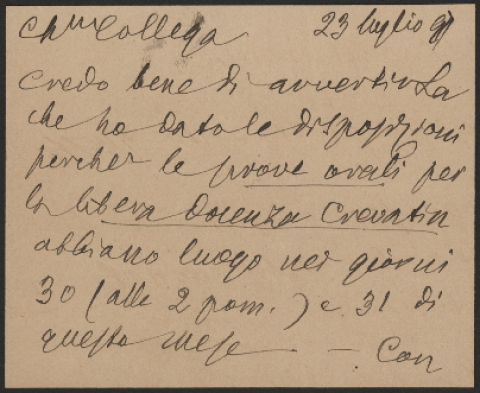 Ch.mo Collega 23 luglio 97
Credo bene di avvertirLa
che ho dato le disposizioni
perchè le prove orali per
la libera docenza Crevatin
abbiano luogo nei giorni
30 (alle 2 pom.) e 31 di
questo mese — Con